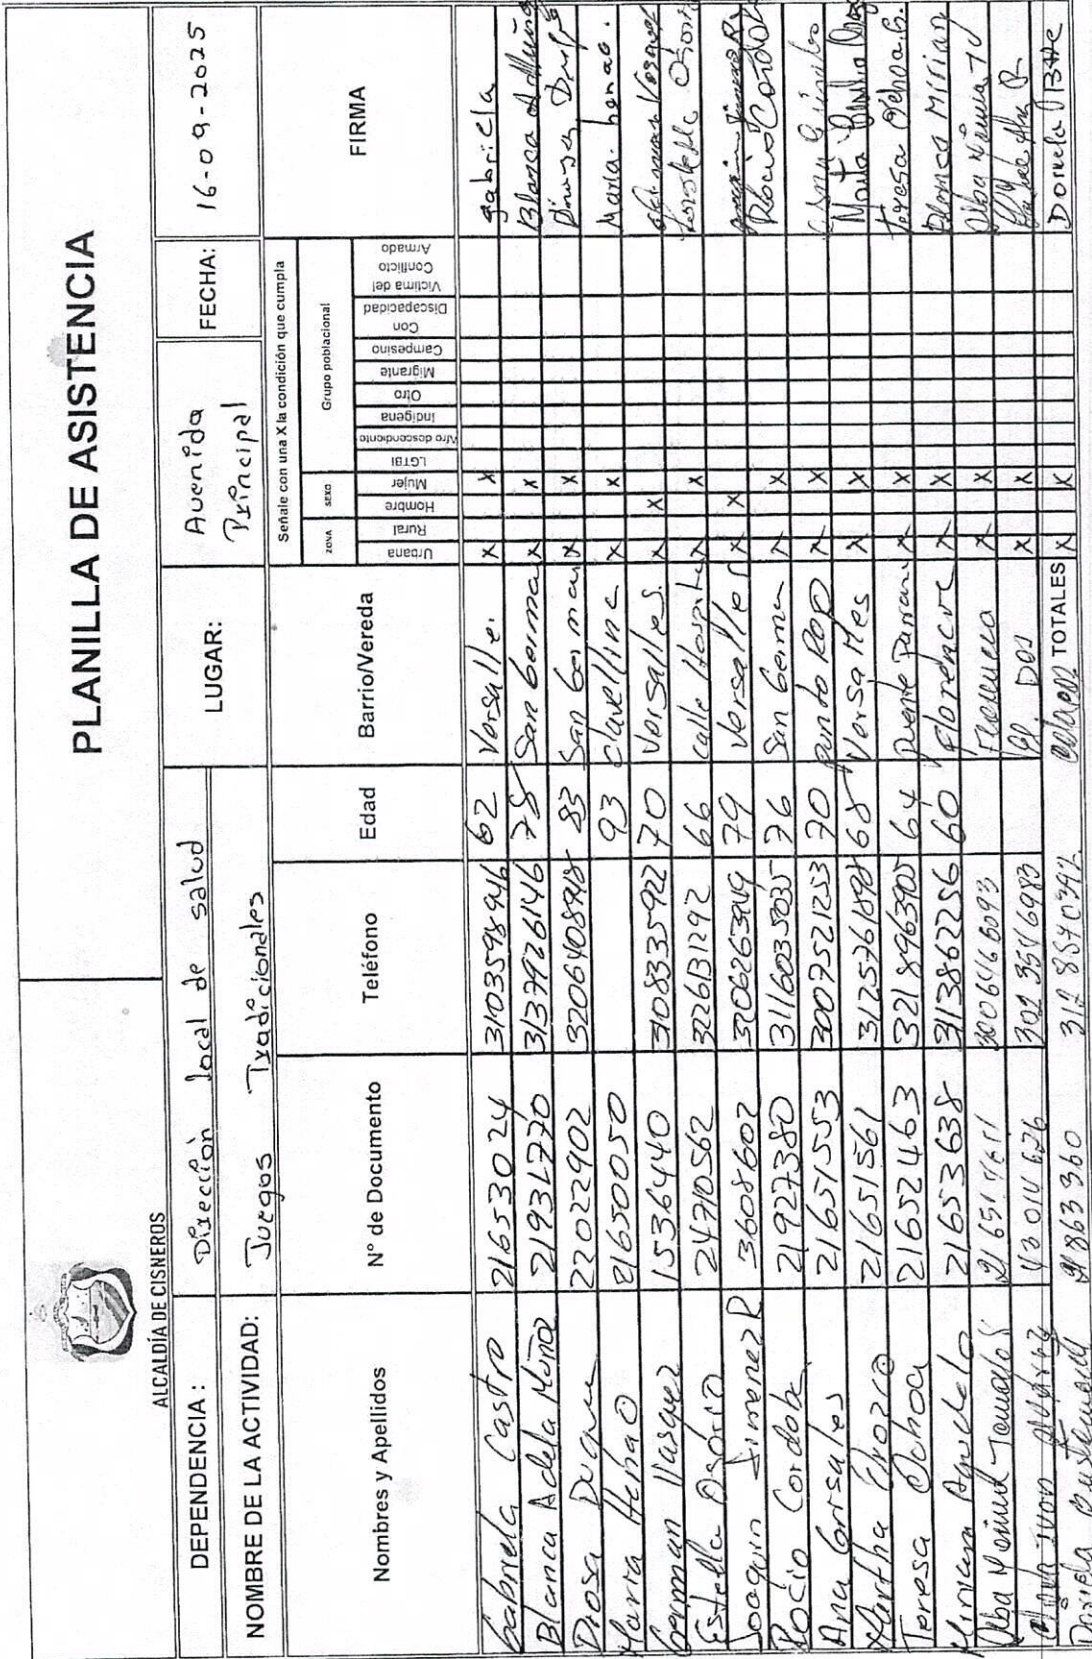 PLANILLA DE ASISTENCIA
ALCALDÍA DE CISNEROS
DEPENDENCIA: Dirección local de salud LUGAR: Avenida Principal FECHA: 16-09-2025
NOMBRE DE LA ACTIVIDAD: Juegos Tradicionales
Señale con una X la condición que cumpla
ZONA SEXO Grupo poblacional
Nombres y Apellidos N° de Documento Teléfono Edad Barrio/Vereda Urbana Rural Hombre Mujer LGTBI Afro descendiente Indigena Otro Migrante Campesino Con Discapacidad Victima del Conflicto Armado FIRMA
Gabriela Castro 21653024 3103598946 62 Versalle. X X gabriela
Blanca Adela Muñoz 21931770 3137926146 78 San German X X Blanca A Muño
Diosa Duque 22022902 3206408948 83 San German X X Diosa Duque
Maria Henao 21650050 93 Clavellina X X Maria henao.
German Vasquez 1536440 3108335922 70 Versalles. X X German Vasquez
Estella Osorio 24710562 3226131292 66 calle Hospital X X Osorio
Joaquin Jimenez R 3608602 3206263949 79 Versalles X X
Rocio Cordoba 21927380 3116035035 76 San German X X Rocio Cordoba
Ana Grisales 21651553 3007521253 70 Punto Rojo X X
Martha Orozco 21651561 3125761898 68 Versalles X X Marta
Teresa Ochoa 21652463 3218963905 64 puente Parana X X Teresa Ochoa.G.
Miriam Agudelo 21653638 3113862256 60 Florencia X X Miriam
Alba 3006466093 Florencia X X Alba
43014626 302 3546983 El Dos X X
Doriela 21863360 312 8640342 TOTALES X X Doriela